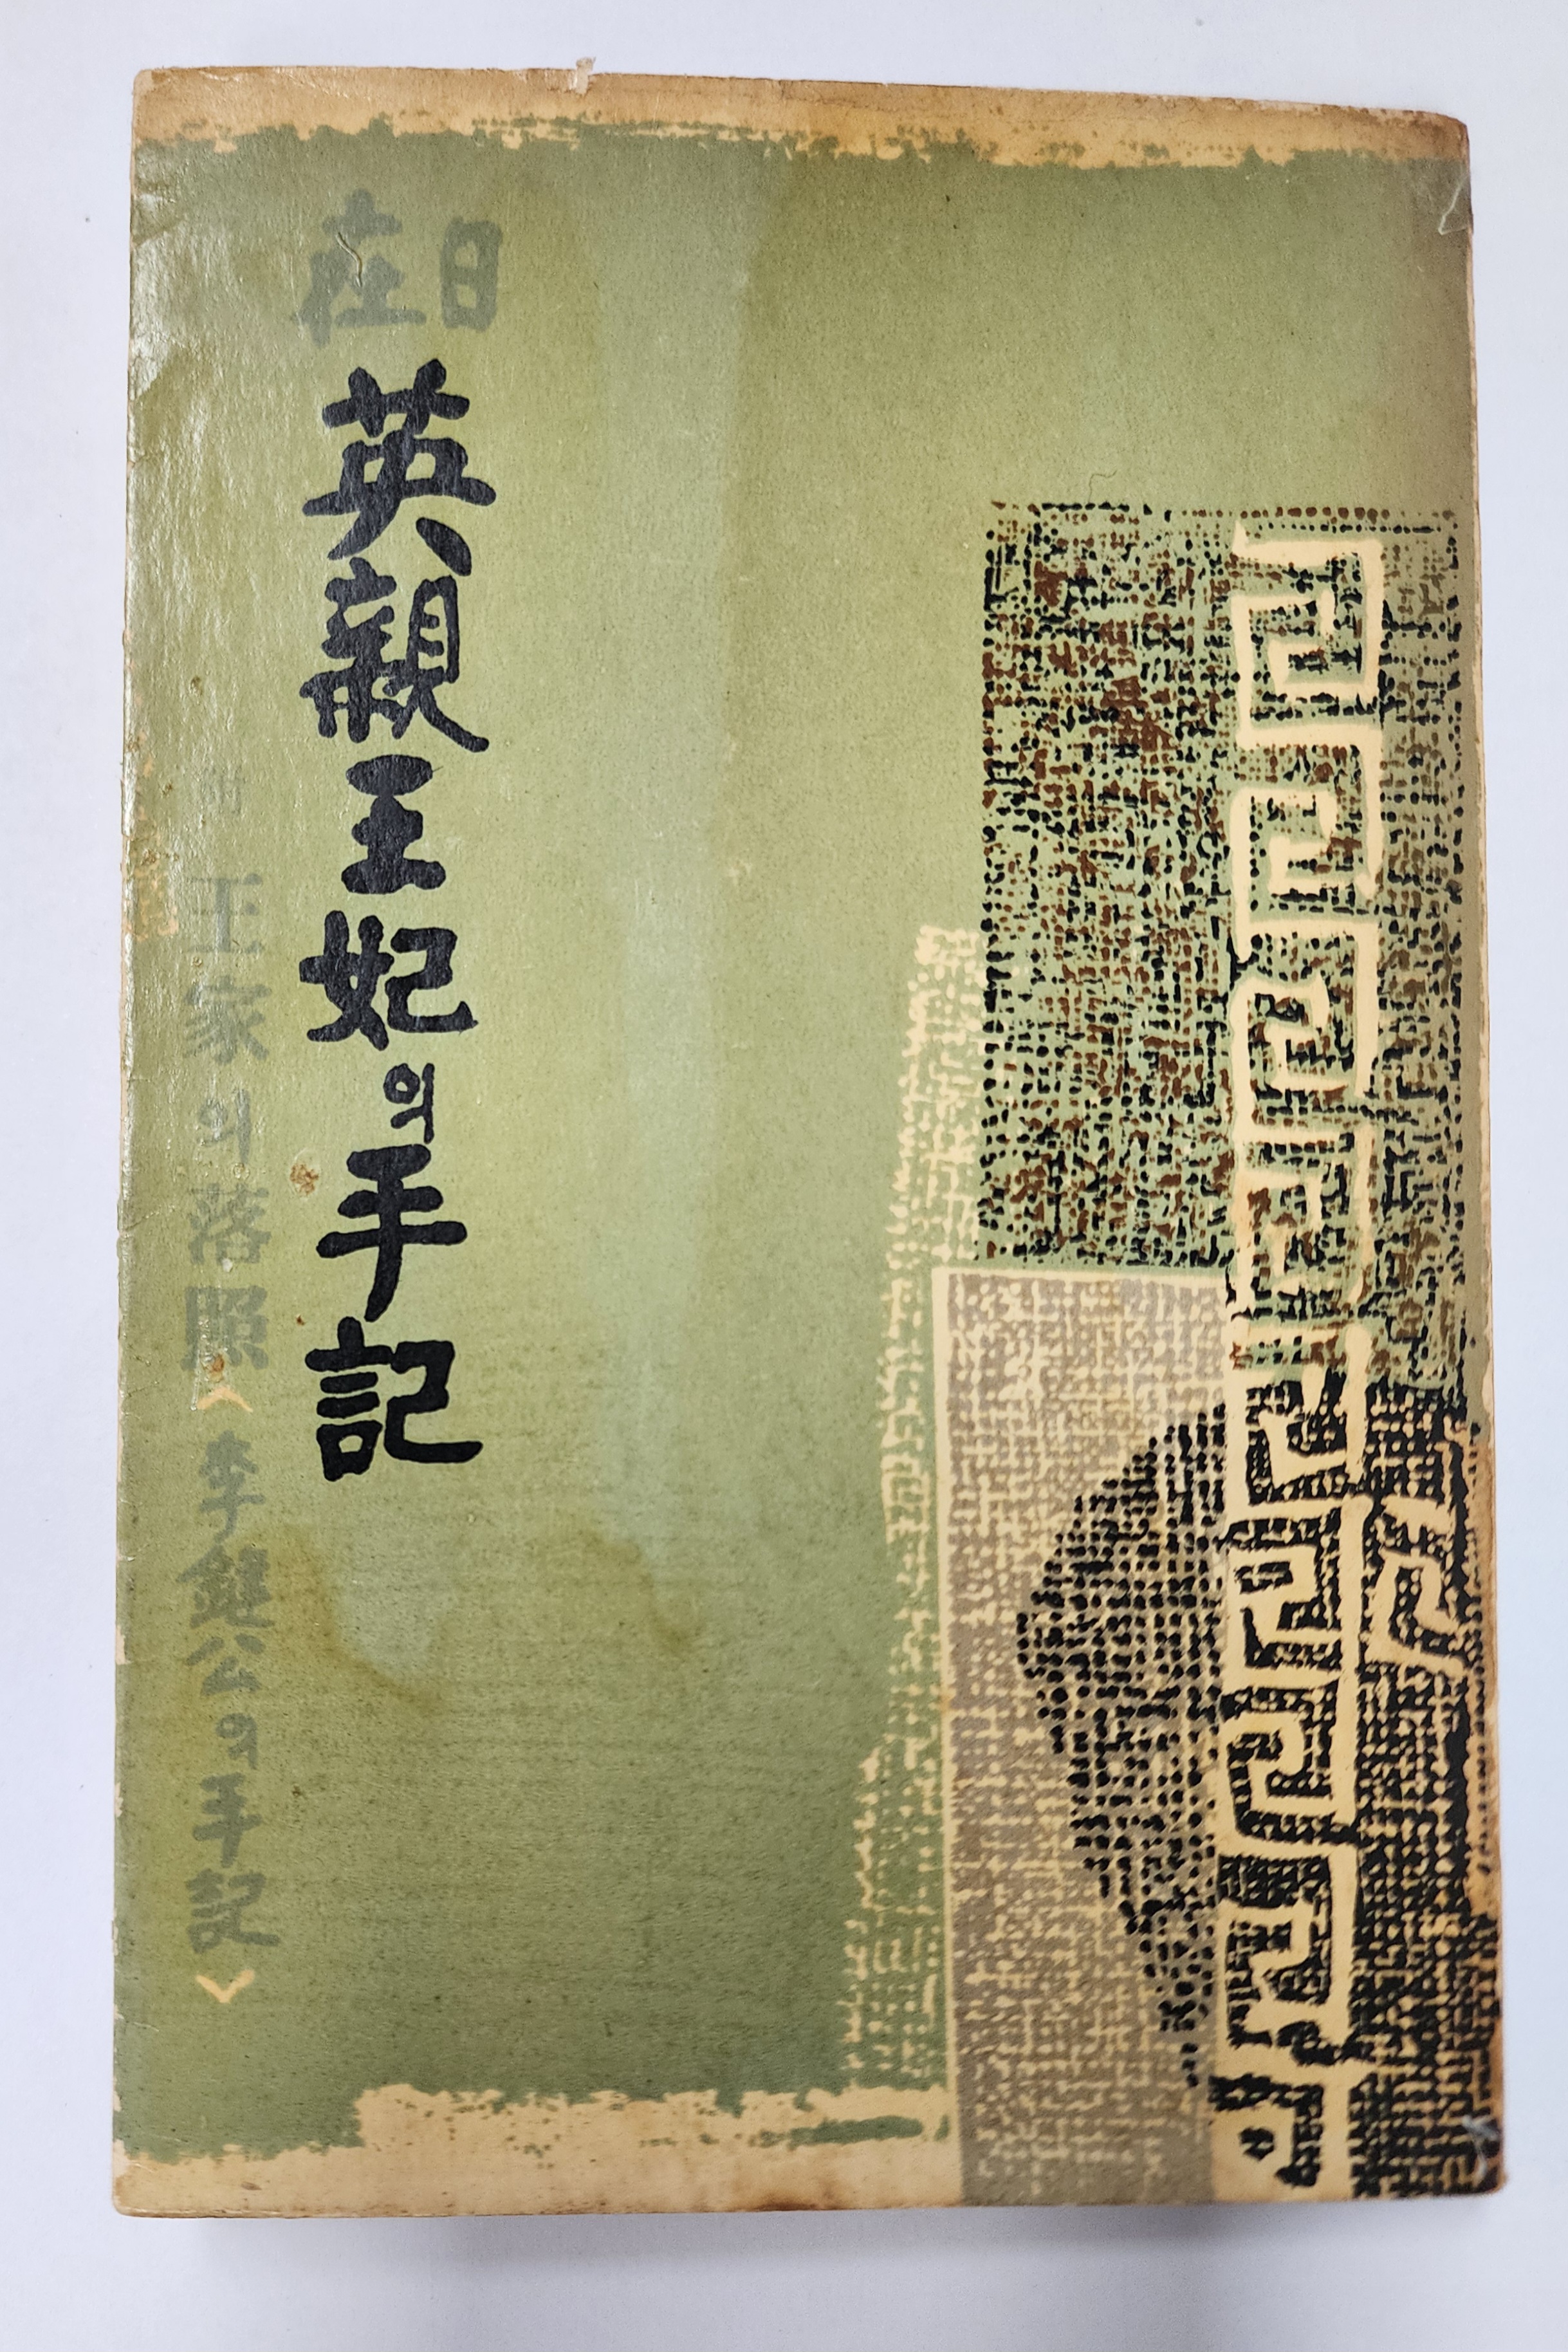 在日
英親王妃의手記
王家의落照〈李鍵公의手記〉